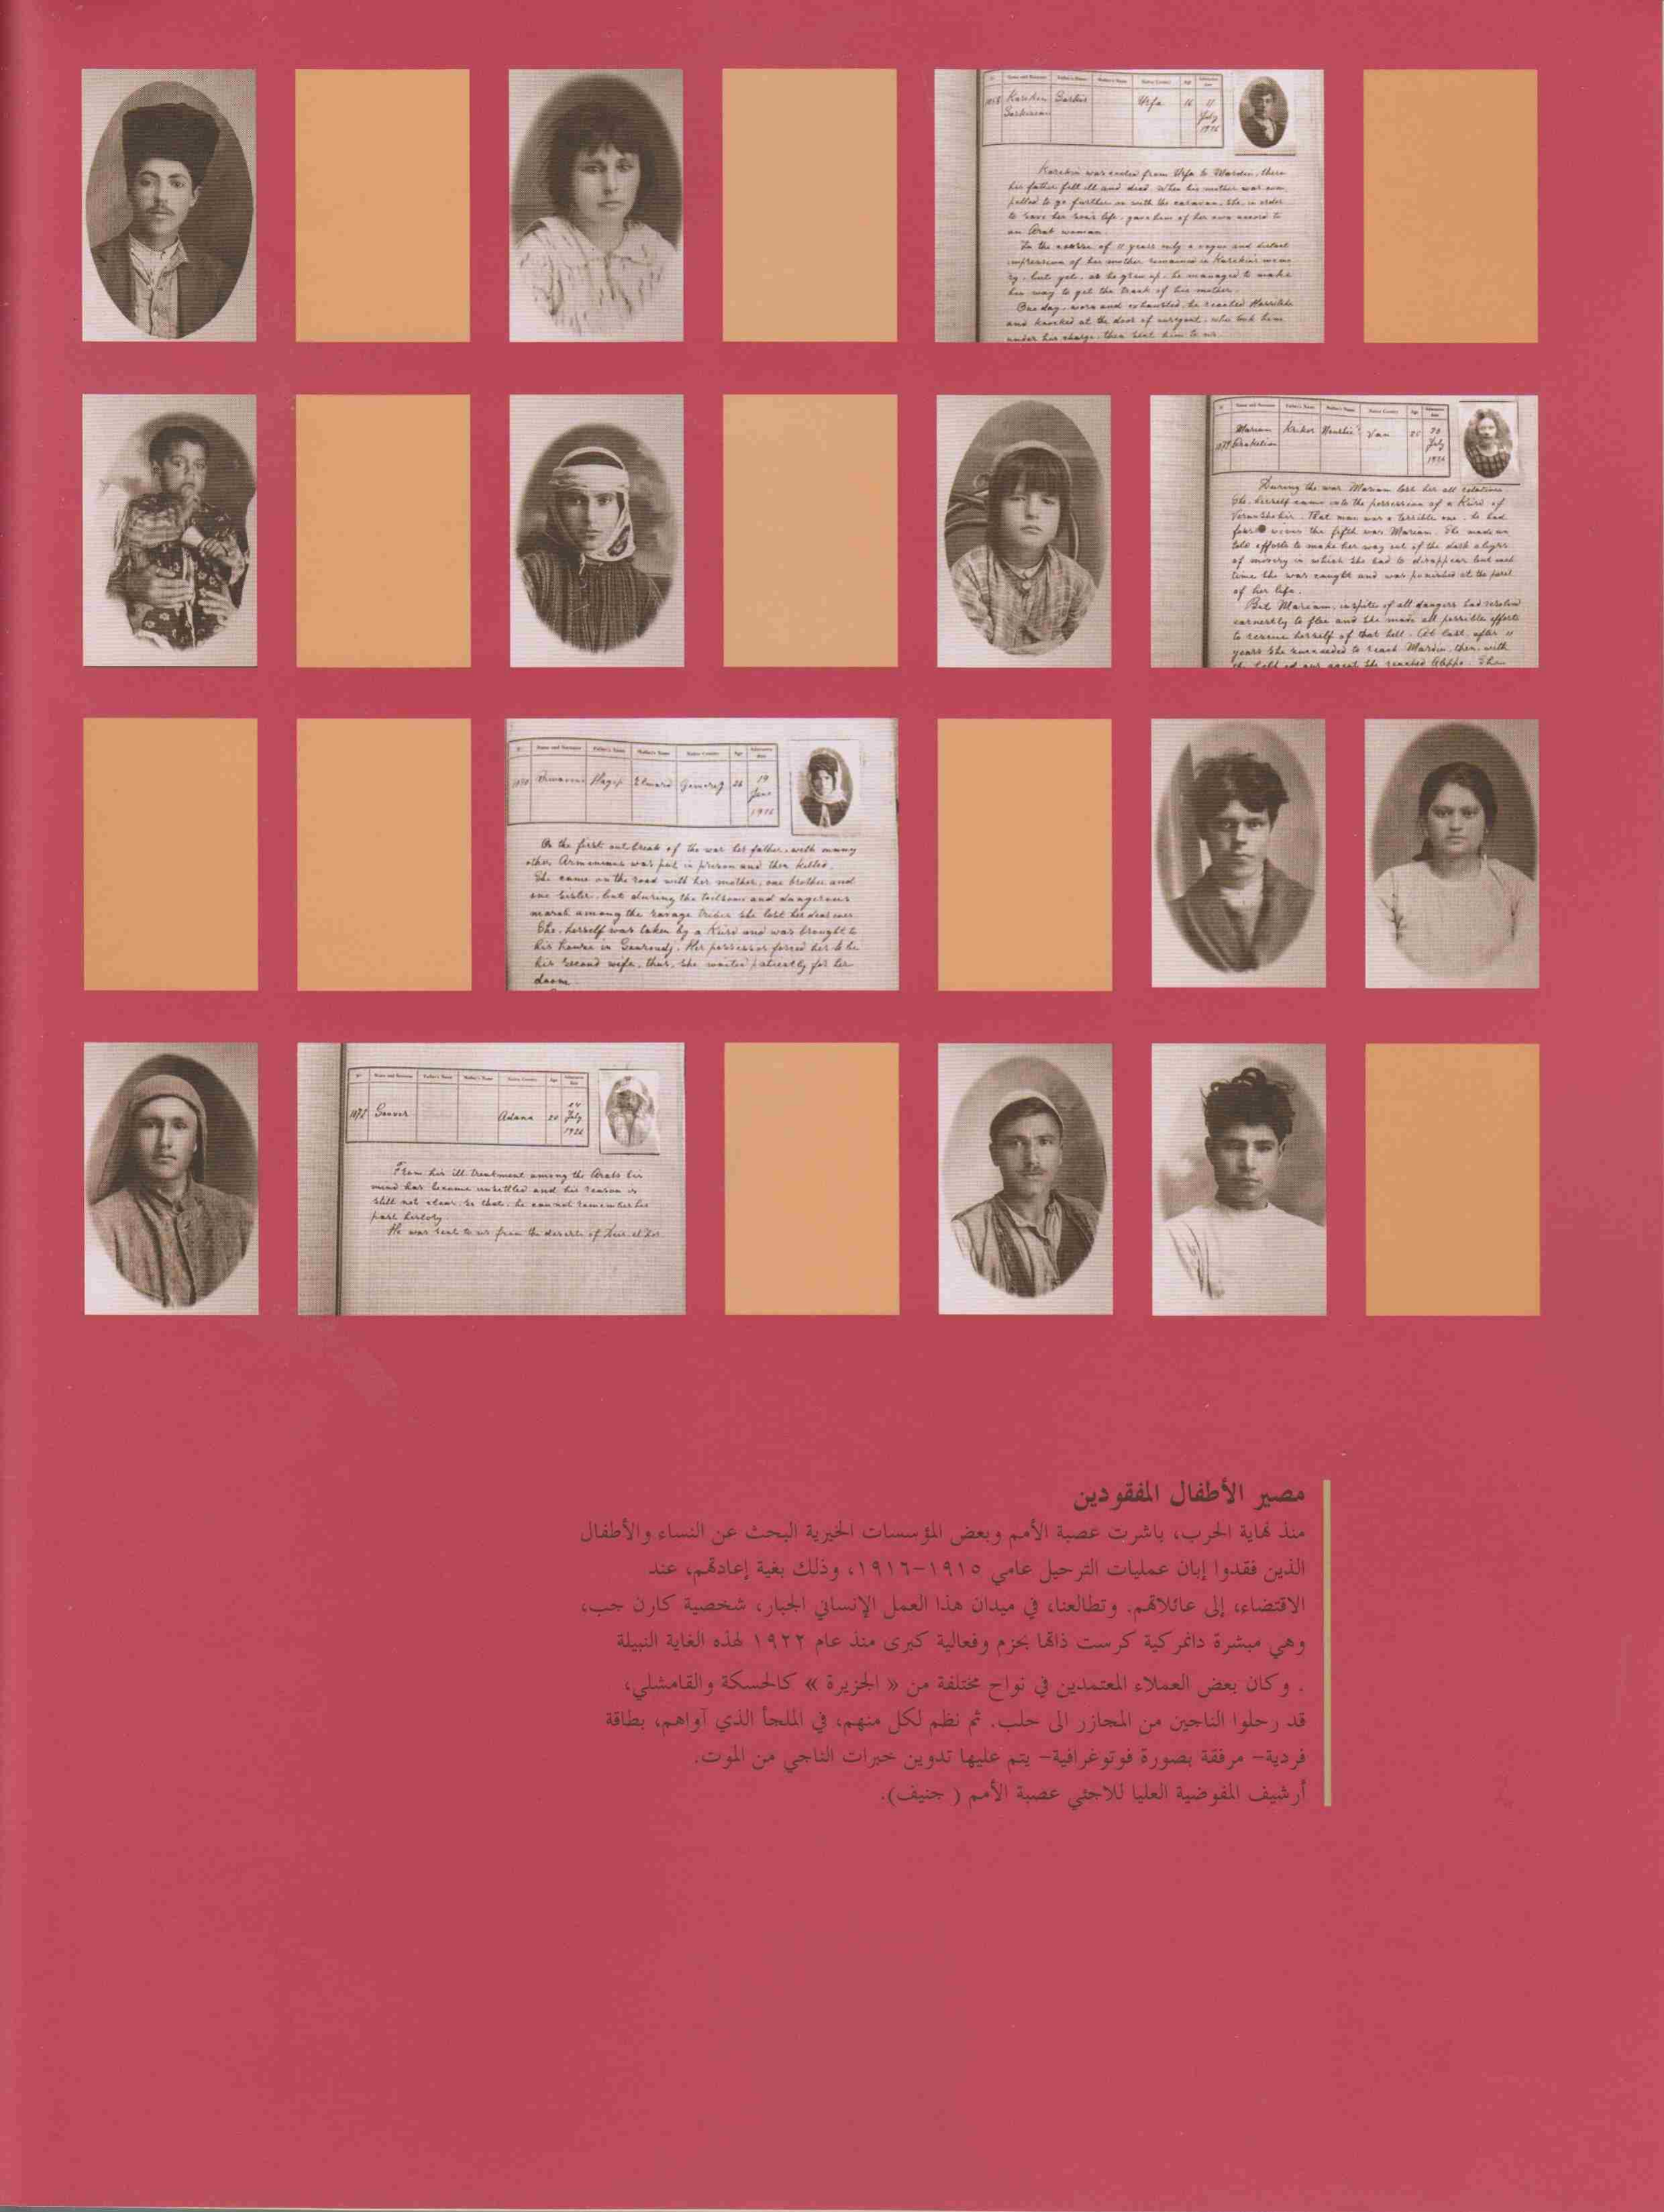 Nº Name and Surname Father's Name Mother's Name Native Country Age Admission date
Karekin Sarkis Urfa 16 11
Sarkissian July
1926
Karekin was exiled from Urfa to Mardin, there
his father fell ill and died. When his mother was com-
pelled to go further on with the caravan, she, in order
to save her son's life, gave him of her own accord to
an Arab woman.
In the course of 11 years only a vague and
impression of his mother remained in Karekin's memo
ry, but yet, as he grew up, he managed to make
his way to get the track of his mother.
One day, worn and exhausted, he reached
and knocked at the door of our agent, who took him
under his charge, then sent him to us.
Nº Name and Surname Father's Name Mother's Name Native Country Age Admission date
Mariam Krikor Van 25 30
July
1926
During the war Mariam lost her all relations.
She, herself came into the possession of a Kurd of
Veranshehir. That man was a terrible one, he had
four wives the fifth was Mariam. She made un
told efforts to make her way out of the dark abyss
of misery in which she had to disappear but each
time she was caught and was punished at the peril
of her life.
But Mariam, inspite of all dangers had resolved
earnestly to flee and she made all possible efforts
to rescue herself of that hell. At last, after 11
years she succeeded to reach Mardin, then, with
the help of our agent she reached Aleppo. She
Nº Name and Surname Father's Name Mother's Name Native Country Age Admission date
Hagop Elmard 26 19
June
1926
At the first outbreak of the war her father, with many
other Armenians was put in prison and then killed.
She came on the road with her mother, one brother and
one sister, but during the toilsome and dangerous
march among the savage tribes she lost her dear ones.
She, herself was taken by a Kurd and was brought to
his house in. Her possessor forced her to be
his second wife, thus, she waited patiently for her
doom.
Nº Name and Surname Father's Name Mother's Name Native Country Age Admission date
1072 Adana 20 24
July
1926
From his ill treatment among the Arabs his
mind has become unsettled and his reason is
still not clear, so that, he can not remember his
past history.
He was sent to us from the deserts of
مصير الأطفال المفقودين
منذ نهاية الحرب، باشرت عصبة الأمم وبعض المؤسسات الخيرية البحث عن النساء والأطفال
الذين فقدوا إبان عمليات الترحيل عامي ١٩١٥-١٩١٦، وذلك بغية إعادتهم، عند
الاقتضاء، إلى عائلاتهم. وتطالعنا، في ميدان هذا العمل الإنساني الجبار، شخصية كارن جب،
وهي مبشرة دانمركية كرست ذاتها بحزم وفعالية كبرى منذ عام ١٩٢٢ لهذه الغاية النبيلة
. وكان بعض العملاء المعتمدين في نواح مختلفة من « الجزيرة » كالحسكة والقامشلي،
قد رحلوا الناجين من المجازر الى حلب. ثم نظم لكل منهم، في الملجأ الذي آواهم، بطاقة
فردية- مرفقة بصورة فوتوغرافية- يتم عليها تدوين خبرات الناجي من الموت.
أرشيف المفوضية العليا للاجئي عصبة الأمم ( جنيف).